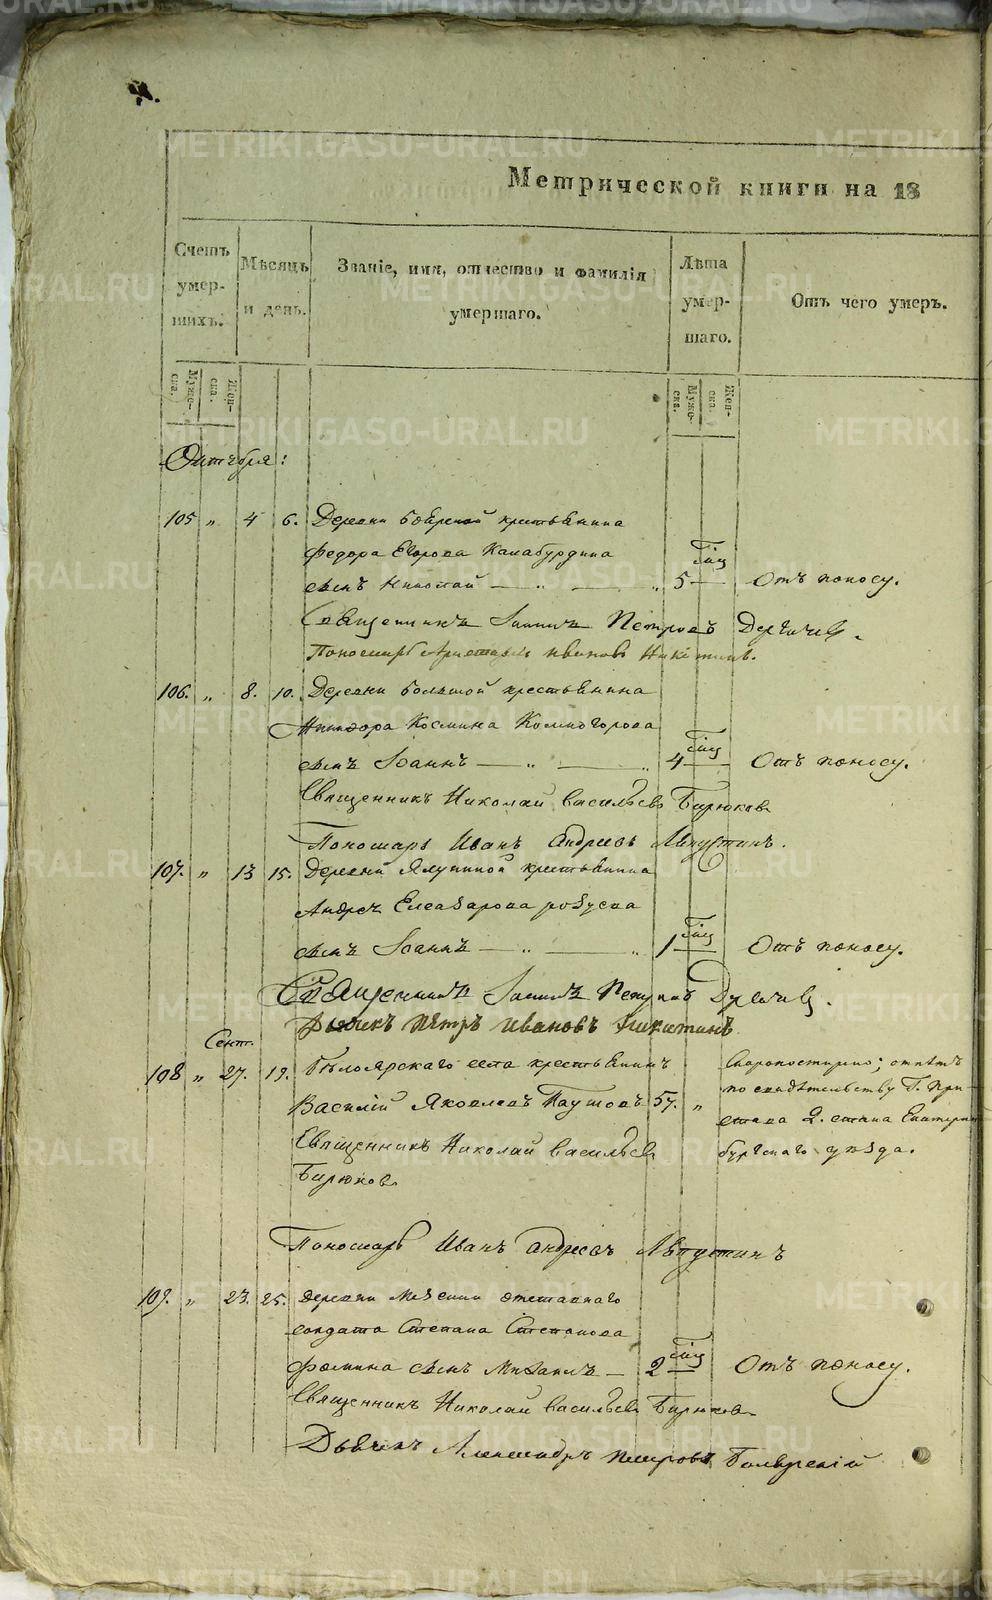 Метрической книги на 18
Счетъ умер-шихъ.
Мѣсяцъ и день.
Званіе, имя, отчество и фамилія умершаго.
Лѣта умер-шаго.
Отъ чего умеръ.
Муже-ска.
Жен-ска.
Муже-ска.
Жен-ска.
Октября:
105 „ 4 6. Деревни Боярской крестьянина
Федора Егорова
сынъ Николай — „ — „ 5 Отъ поносу.
Священникъ Іоаннъ Петровъ
Пономарь Ивановъ Никитинъ.
106. „ 8. 10. Деревни Большой крестьянина
Никифора Космина Комногорова
сынъ Іоаннъ — „ — „ 4 Отъ поносу.
Священникъ Николай Васильевъ Бирюковъ
Пономарь Иванъ Андреевъ Ляпустинъ.
107. „ 13 15. Деревни Ялуниной крестьянина
Андрея Елеазарова
сынъ Іоаннъ — „ — „ 1 Отъ поносу.
Священникъ Іоаннъ Петровъ
Дьячекъ Петръ Ивановъ Никитинъ
Сент.
108 „ 27. 19. Бѣлоярскаго села крестьянинъ Скоропостижно; отпѣтъ
по свидѣтельству Г. При-
Василій Яковлевъ Паутовъ 57. „ става 2. стана Екатерин
Священникъ Николай Васильевъ бургскаго уѣзда.
Бирюковъ
Пономарь Иванъ Андреевъ Ляпустинъ
109. „ 23. 25. Деревни Мезенки отставнаго
солдата Степана Степанова
Фомина сынъ Михаилъ — 2 Отъ поносу.
Священникъ Николай Васильевъ Бирюковъ
Дьячекъ Александръ Петровъ
METRIKI.GASO-URAL.RU